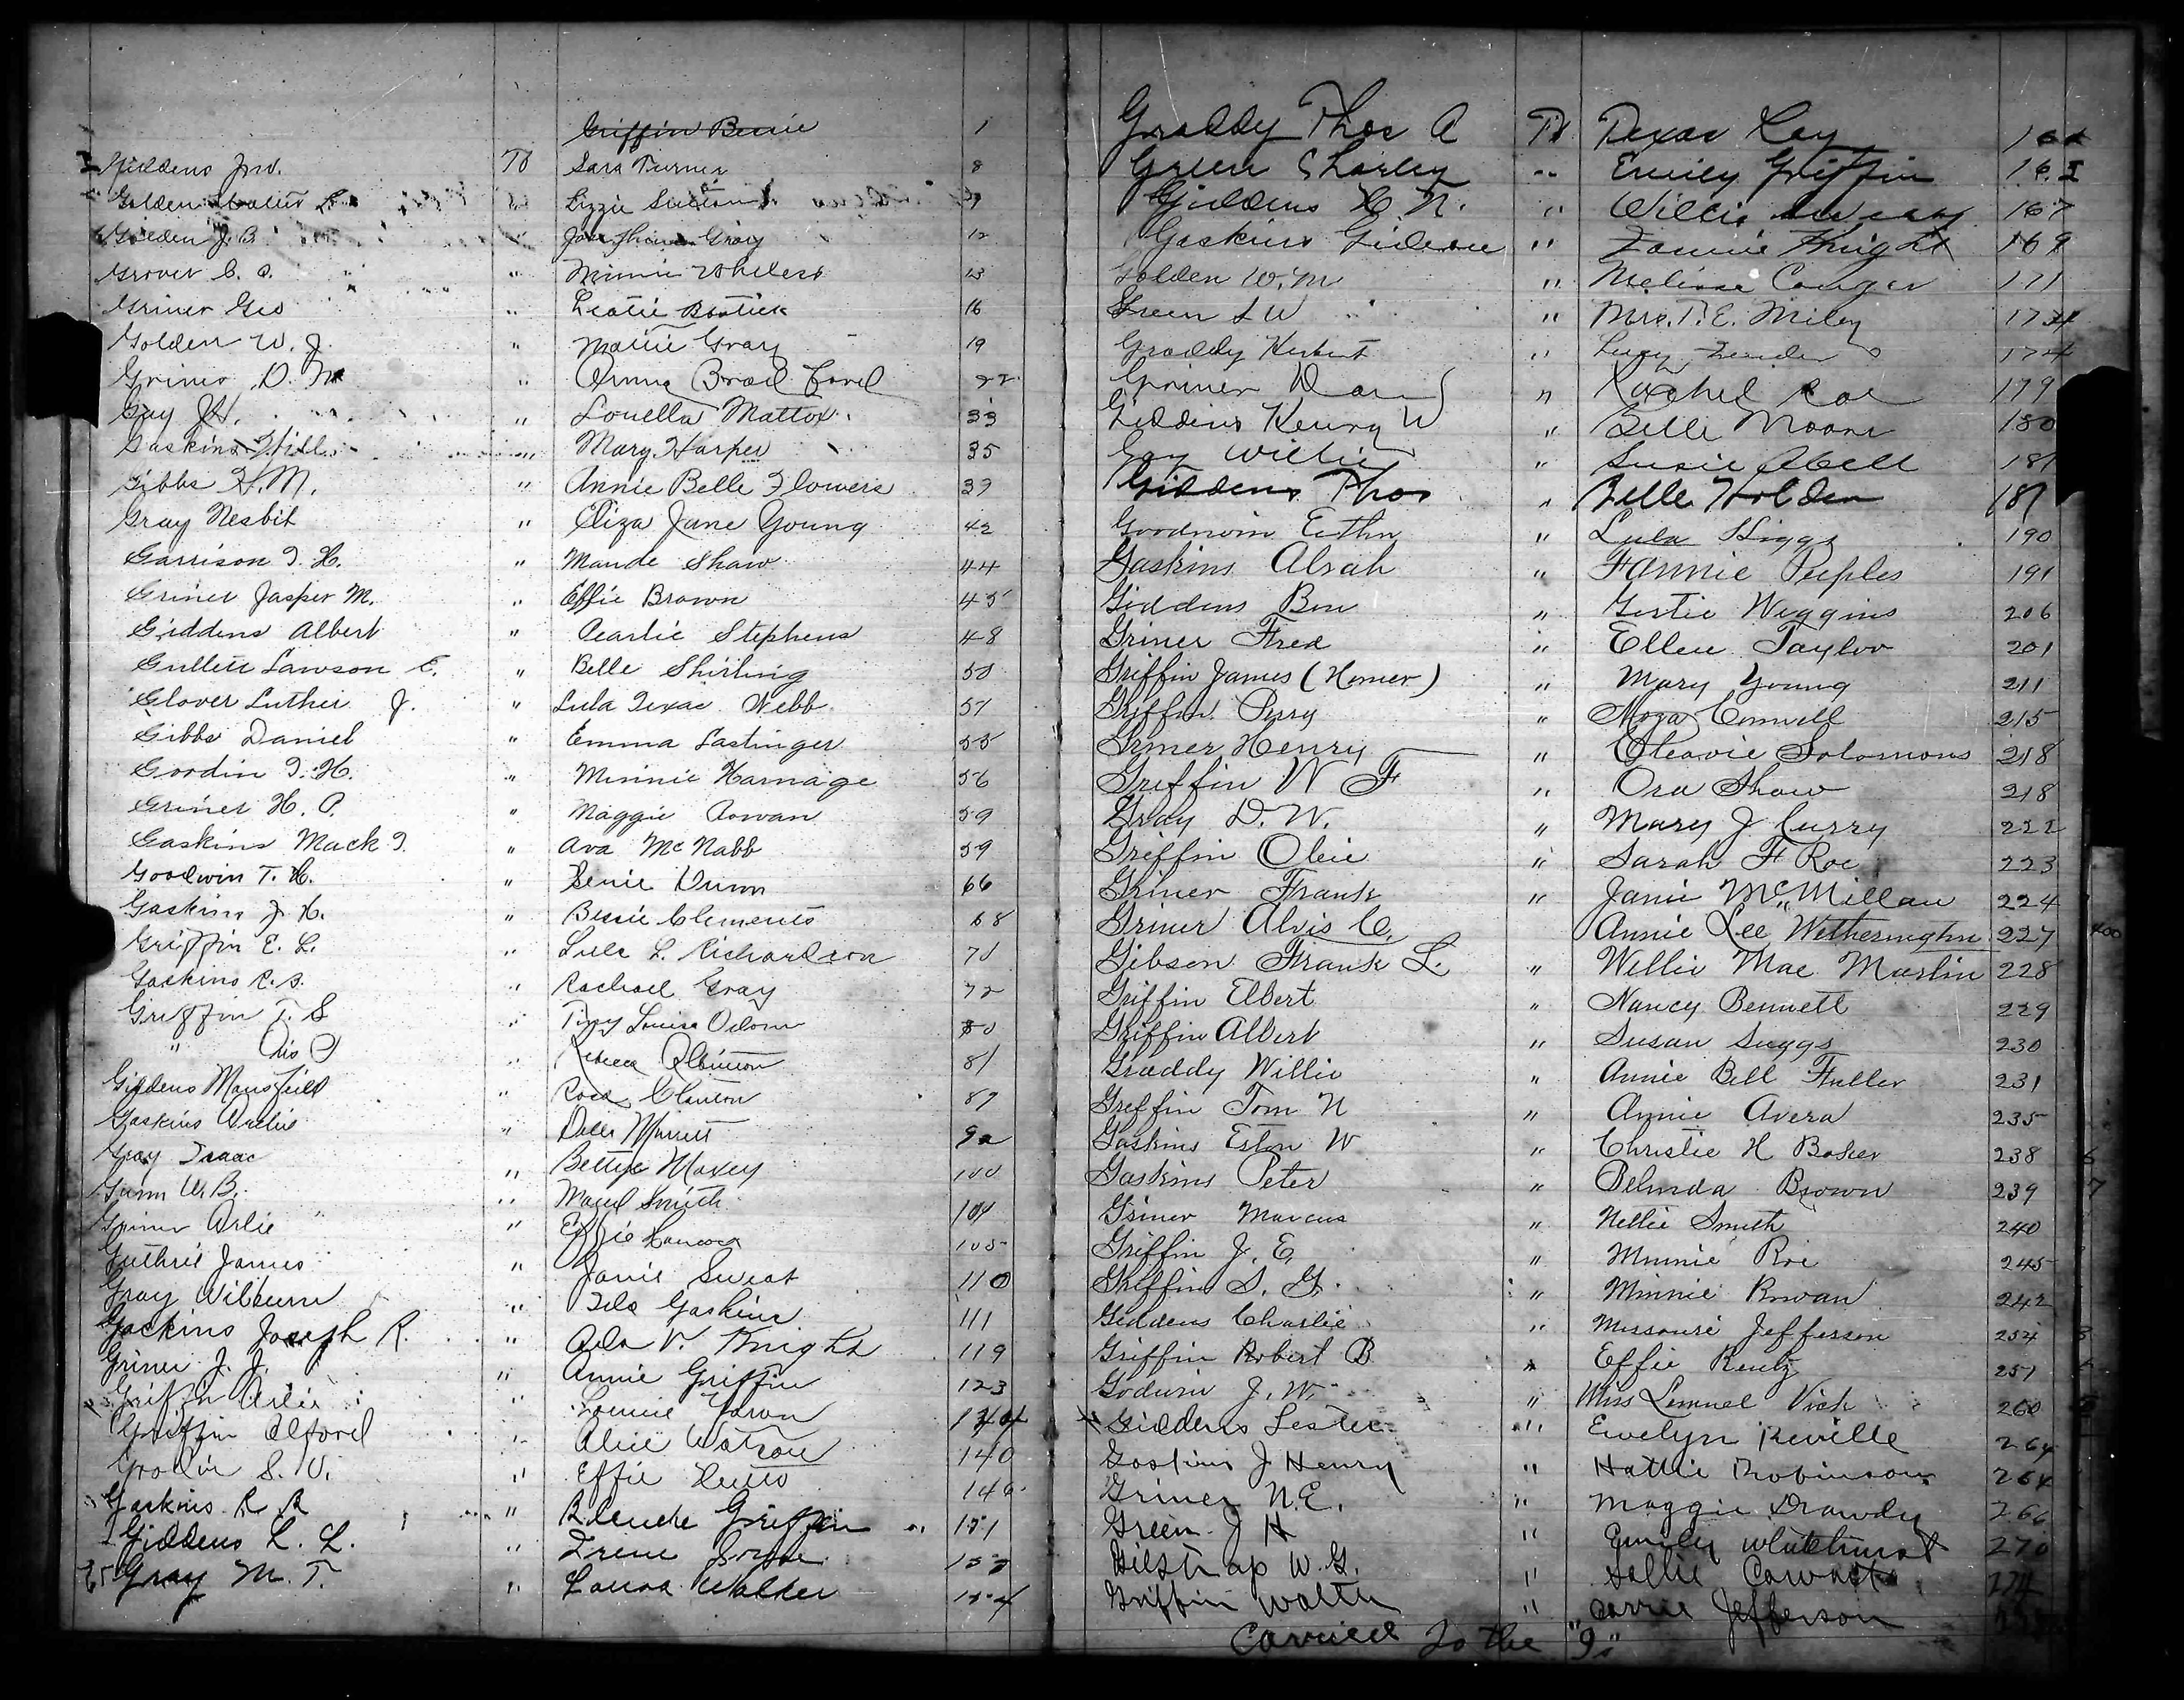 Griffin Bessie 1
Giddens Jno. To Sara Turner 8
Golden Walter L. " Lizzie 9
Golden J. B. " Gray 12
Grover C. C. " Minnie Whiters 13
Griner Geo " Leatie Bostick 16
Golden W. J. " Mattie Gray 19
Grimes D. M. " Anna Bradford 22
Gay J. H. " Louella Mattox 33
Gaskins Will " Mary Harper 35
Gibbs H. M. " Annie Belle Flowers 39
Gray Nesbit " Eliza Jane Young 42
Garrison I. H. " Maude Shaw 44
Griner Jasper M. " Effie Brown 45
Giddens Albert " Pearlie Stephens 48
Gullett Lawson E. " Belle Shirling 50
Glover Luther J. " Lula Texas Webb 51
Gibbs Daniel " Emma Lastinger 55
Goodin I. H. " Minnie Harnage 56
Griner H. P. " Maggie Rowan 59
Gaskins Mack I. " Ava McNabb 59
Goodwin T. H. " Genie Dunn 66
Gaskins J. H. " Bessie Clements 68
Griffin E. L. " Lula L. Richardson 71
Gaskins R. B. " Rachael Gray 72
Griffin T. S " Louisa Odom 80
" Otis " Rebecca Robinson 81
Giddens Mansfield " Rosa Clanton 87
Gaskins " Della 92
Gray Isaac " Bettye Maxey 100
Gunn W. B. " Maud Smith 101
Griner Arlie " Effie Hancock 105
Guthrie James " Janie Sweat 110
Gray Wilburn " Gaskins 111
Gaskins Joseph R. " Ada V. Knight 119
Griner J. J. " Annie Griffin 123
Griffin Arlie " Lonnie 134
Griffin Alford " Alice Watson 140
S. V. " Effie 146
Gaskins R R " Blanche Griffin 151
Giddens L. L. " Irene 153
Gray M. T. " Laura Walker 154
Graddy Thos A To Texas Ray 162
Green Charley " Emily Griffin 165
Giddens C. N. " Willie 167
Gaskins Gideon " Fannie Knight 169
Golden W. M " Melissa Conger 171
Green L W " Mrs. T. E. Miley 174
Graddy Herbert " Lucy 174
Griner Dan " Rachel Roe 179
Giddens Henry W " Belle Moore 180
Gay Willie " Susie Abell 181
Giddens Thos " Belle Holden 187
Goodwin Euthn " Lula Higgs 190
Gaskins Alvah " Fannie Peeples 191
Giddens Ben " Gertie Wiggins 206
Griner Fred " Ellen Taylor 201
Griffin James (Homer) " Mary Young 211
Griffin Perry " Connell 215
Griner Henry " Cleavie Solomons 218
Griffin W F " Ora Shaw 218
Gray D. W. " Mary J Curry 222
Griffin Obie " Sarah F Roe 223
Griner Frank " Janie McMillan 224
Griner Alvis C. Annie Lee Wetherington 227
Gibson Frank L. " Willie Mae Martin 228
Griffin Elbert " Nancy Bennett 229
Griffin Albert " Susan Suggs 230
Graddy Willie " Annie Bell Fuller 231
Griffin Tom N " Annie Avera 235
Gaskins Eston W " Christie H Baker 238
Gaskins Peter " Belinda Brown 239
Griner Marcus " Nellie Smith 240
Griffin J. E. " Minnie Roe 245
Griffin S. G. " Minnie Rowan 242
Giddens Charlie " Missouri Jefferson 254
Griffin Robert B " Effie Rentz 251
Godwin J. W. " Miss Lemuel Vick 260
Giddens Lester " Evelyn Reville 264
Gaskins J Henry " Hattie Robinson 264
Griner N. E. " Maggie Drawdy 266
Green J H " Emily Whitehurst 270
Gilstrap W. G. " Sallie 274
Griffin Walter " Carrie Jefferson
Carried to the "Is"